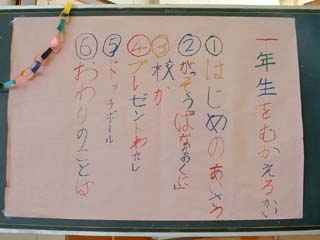 一年生をむかえるかい
①はじめのあいさつ
②がっそう「ばななのくに」
③校か
④プレゼントわたし
⑤ドッチボール
⑥おわりのことば